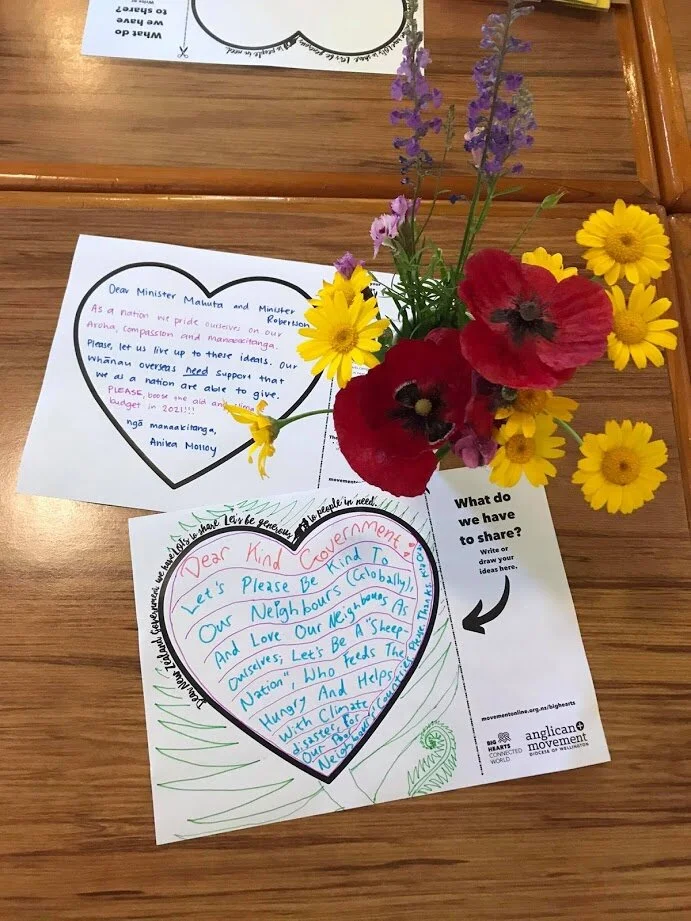 What do
we have
to share?
Write or
to people in need.
Dear Minister Mahuta and Minister
Robertson
As a nation we pride ourselves on our
Aroha, compassion and manaakitanga.
Please, let us live up to these ideals. Our
whānau overseas need support that
we as a nation are able to give.
PLEASE, boose the aid and
budget in 2021!!!
ngā manaakitanga,
Anilea Molloy
Dear New Zealand Government we have lots to share let's be generous to people in need.
Dear Kind Government,
Let's Please Be Kind To
Our Neighbours (Globally),
And Love Our Neighbours As
Ourselves; Let's Be A "Sheep-
Nation", Who Feeds The
Hungry And Helps
With Climatt
disasters for
Our Poor
Neighbours' Countries
What do
we have
to share?
Write or
draw your
ideas here.
movementonline.org.nz/bighearts
BIG
HEARTS
CONNECTED
WORLD
anglican
movement
DIOCESE OF WELLINGTON